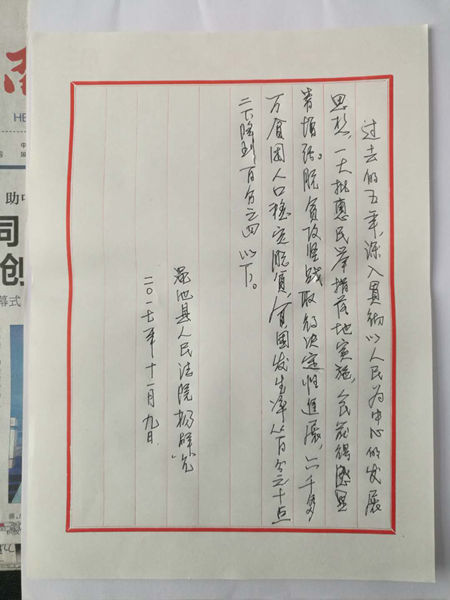 过去的五年,深入贯彻以人民为中心的发展
思想,一大批惠民举措落地实施,人民获得感显
著增强。脱贫攻坚战取得决定性进展,六千多
万贫困人口稳定脱贫,贫困发生率从百分之十点
二下降到百分之四以下。
渑池县人民法院杨群
二〇一七年十一月九日
HE
助中
同
创
幕式